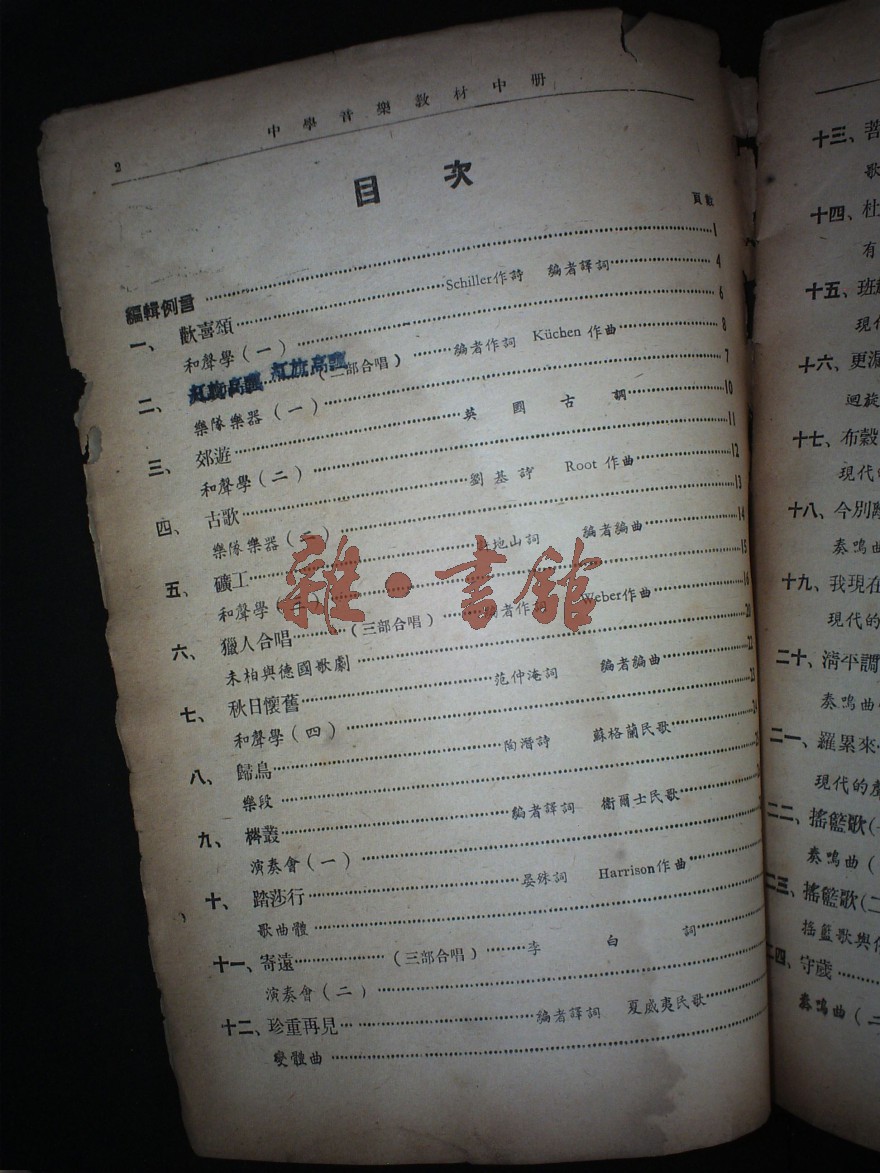 中學音樂教材中册
2
目次
頁數
編輯例言 1
一、歡喜頌 Schiller作詩 編者譯詞 4
和聲學(一) 6
二、紅旗高飄 紅旗高飄 (二部合唱) 編者作詞 Kücken 作曲 8
樂隊樂器(一) 7
三、郊遊 英國古調 10
和聲學(二) 11
四、古歌 劉基詩 Root 作曲 12
樂隊樂器(二) 13
五、礦工 地山詞 編者編曲 14
和聲學(三) 15
六、獵人合唱 (三部合唱) 編者作詞 Weber作曲 16
韦柏與德國歌劇 20
七、秋日懷舊 范仲淹詞 編者編曲 22
和聲學(四) 23
八、歸鳥 陶潛詩 蘇格蘭民歌 24
樂段
九、梣叢 編者譯詞 衛爾士民歌
演奏會(一)
十、踏莎行 晏殊詞 Harrison作曲
歌曲體
十一、寄遠 (三部合唱) 李白詞
演奏會(二)
十二、珍重再見 編者譯詞 夏威夷民歌
變體曲
十三、菩
歌
十四、杜
有
十五、班
現
十六、更漏
迴旋
十七、布穀
現代的
十八、今別離
奏鳴曲
十九、我現在
現代的
二十、清平調
奏鳴曲
二一、羅累來
現代的
二二、搖籃歌(一
奏鳴曲(
二三、搖籃歌(二
搖籃歌與
二四、守歲
奏鳴曲(二
雜·書館